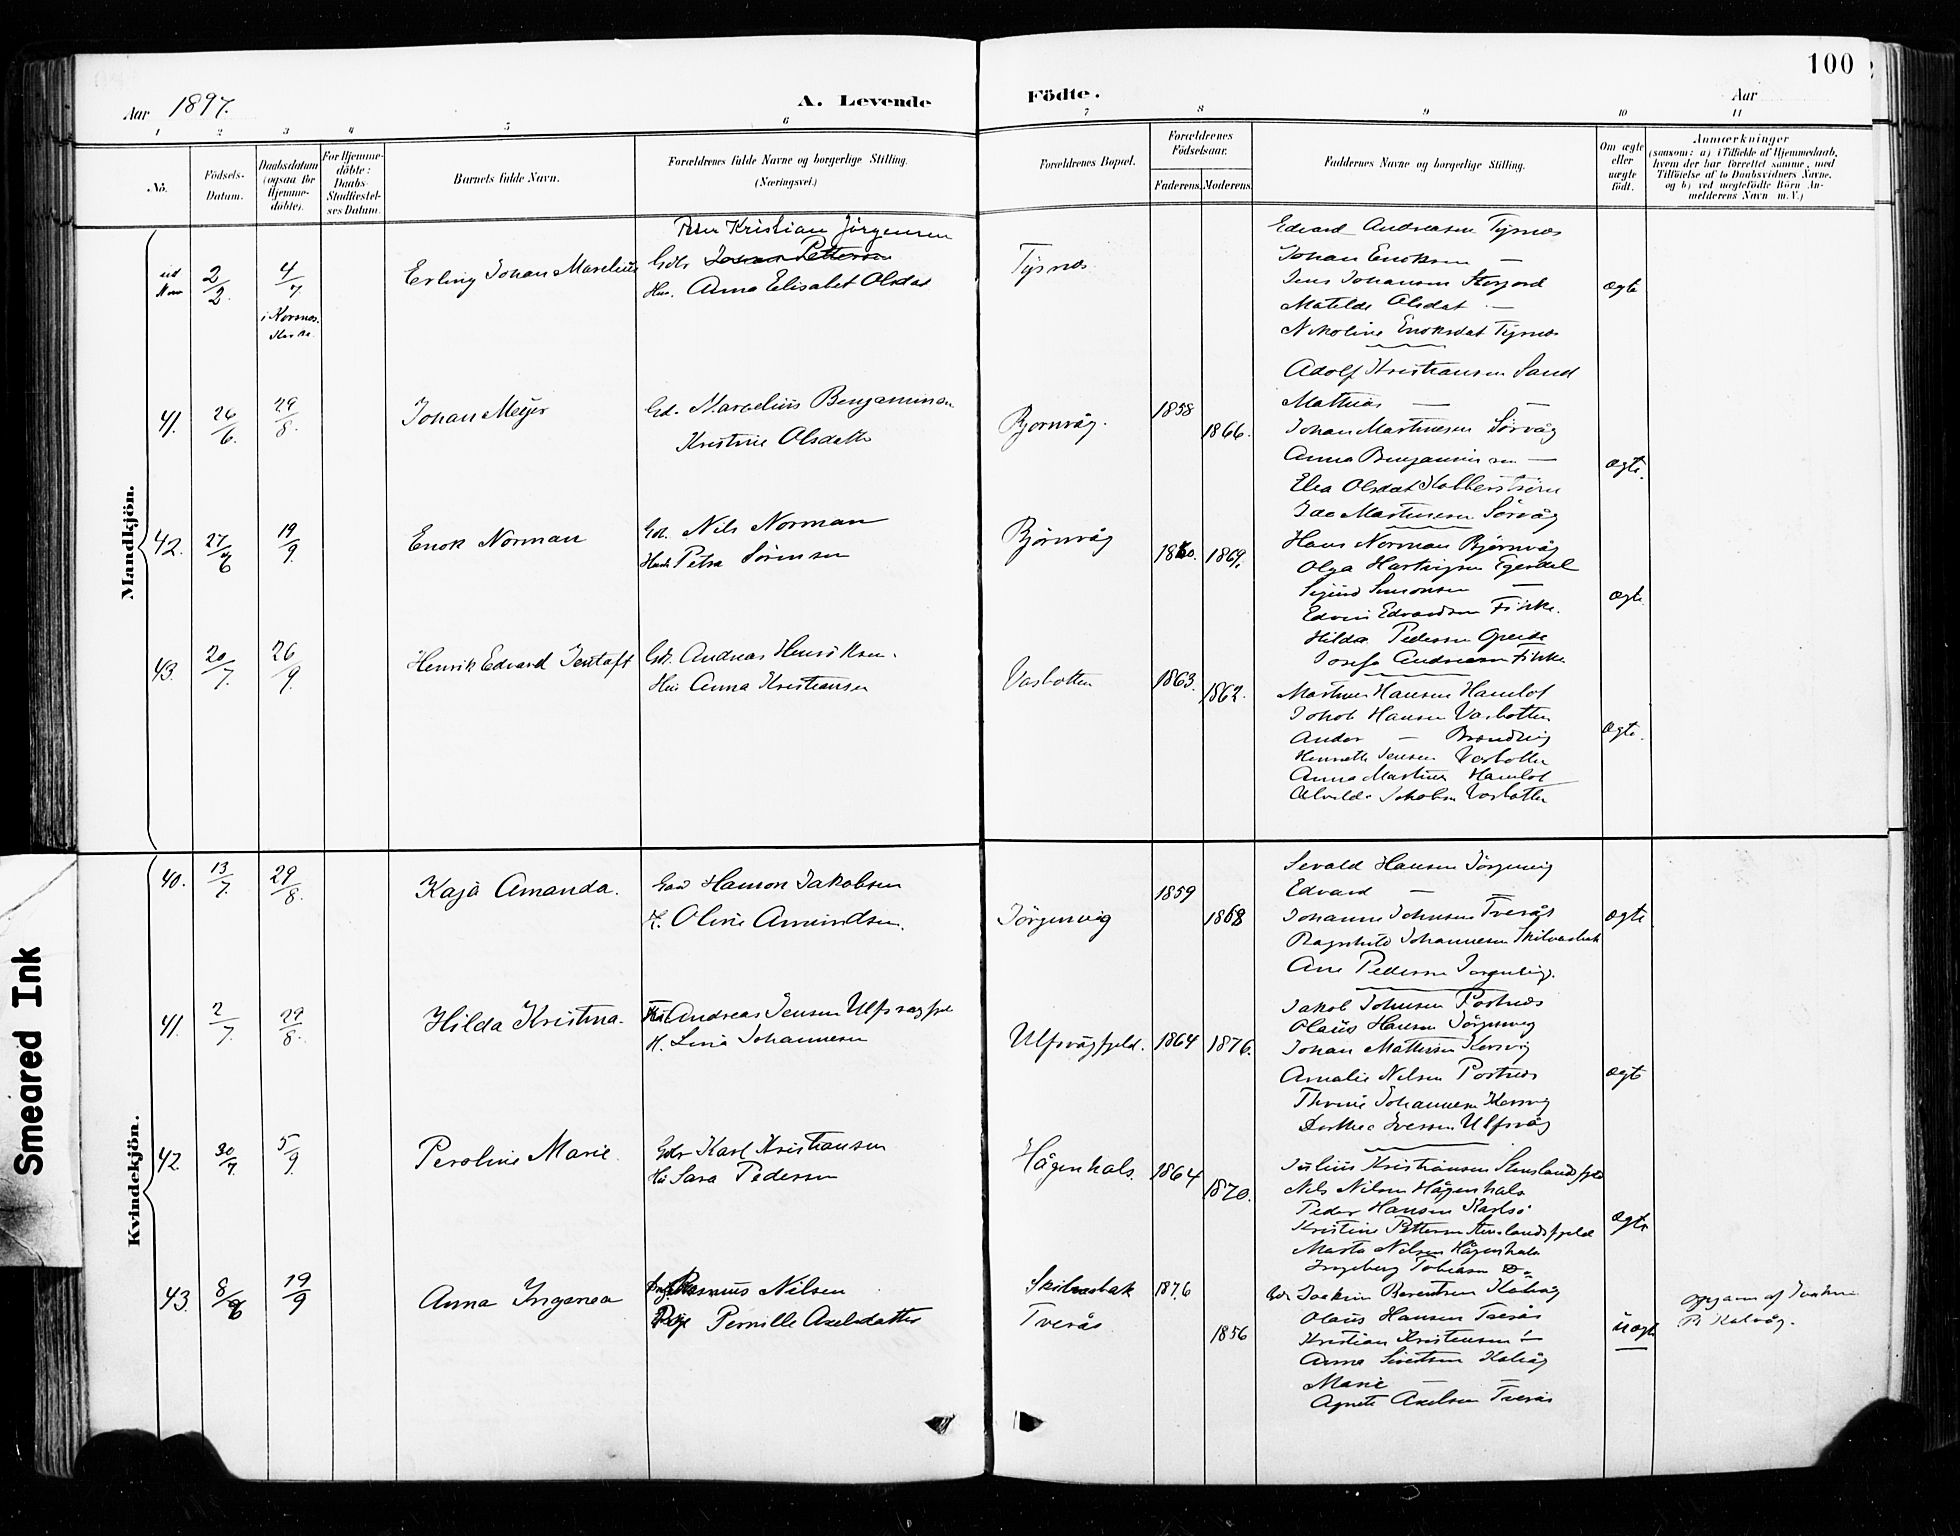 100
Aar 1897.
A. Levende Födte.
Aar
1 2 3 4 5 6 7 8 9 10 11
No.
Födsels-Datum.
Daabsdatum (ogsaa for Hjemmedöbte).
For Hjemmedöbte: Daabs Stadfæstelses Datum.
Barnets fulde Navn.
Forældrenes fulde Navne og borgerlige Stilling.
(Næringsvei.)
Forældrenes Bopæl.
Forældrenes Födselsaar.
Faderens. Moderens.
Faddernes Navne og borgerlige Stilling.
Om ægte eller uægte födt.
Anmærkninger
(saasom: a) i Tilfælde af Hjemmedaab, hvem der har forrettet samme, med Tilföielse af to Daabsvidners Navne, og b) ved uægtefödte Börn Anmelderens Navn m. V.)
Mandkjön.
Peter Kristian Jörgensen
2/2. 4/7 i Korsnes Kirke.
Erling Johan Marelius
Gdbr Pettersen
Hu. Anna Elisabet Olsdat
Tysnes
Edvard Andreasen Tysnes
Johan Enoksen —
Jens Johansen Storjord
Matilde Olsdat —
Nikoline Enoksdat Tysnes
Ægte
41. 26/6. 29/8.
Johan Meÿer
Gd. Marselius Benjaminsen
Kristine Olsdatter
Bjornvåg.
1858
1866.
Adolf Kristiansen Sand
Mathias — —
Johan Martinesen Sörvåg
Anna Benjaminsen —
Elea Olsdat Kobberström
Ida Martinesen Sörvåg
Ægte.
42. 27/6 19/9.
Enok Norman
Gd. Nils Norman
Hust Petra Sörensen
Björnvåg
1860. 1869.
Hans Norman Björnvåg
Olga Hartvigsen
Sigurd Simonsen —
Edvin Edvardsen Finke.
Hilda Pedersen
Josefa Andreasen Finke
Ægte.
43. 20/7. 26/9.
Henrik Edvard Jentoft
Gdr. Andreas Henriksen.
Hus Anna Kristiansen
Vasbotten
1863.
1862.
Martines Hansen Hamlot
Jakob Hansen Vasbotten
Andor —
Henrette Jensen Vasbotten
Anna Martines Hamlot
Alvilde Jakobsen Vasbotten
Ægte.
Kvindekjön.
40. 13/7. 29/8.
Kaja Amanda.
Gdr Hanson Jakobsen
H. Oline Amundsen.
Jörgenvig
1859
1868
Sevald Hansen Jörgenvig
Edvard —
Johanne Johnsen Tverås
Ragnhild Johannesen Skilvasbak
Ane Pedersen Jörgenvig.
Ægte
41. 2/7. 29/8.
Hilda Kristina.
Andreas Jensen Ulfsvagfjel
H. Lina Johannesen
Ulfsvågfjeld.
1864 1876.
Jakob Johnsen Postnes
Olaüs Hansen Jörgenvig
Johan Mattesen Korsvig
Amalie Nilsen Postnes
Johannesen Korsvig
Dorthea Iversen Ulfsvåg
Ægte
42. 30/7. 5/9.
Peroline Marie.
Gdr Karl Kristiansen
Hu Sara Pedersen
Hågenhals.
1864
1870.
Julius Kristiansen Stenslandsfjeld
Nils Nilsen Hågenhals
Peder Hansen Karlsö
Kristine Pettersen Stenslandsfjeld
Marta Nilsen Hågenhals
Ingeborg Tobiasen Do
Ægte
43. 8/6 19/9
Anna Ingenea
Ungk. Rasmus Nilsen
Pige Pernille Axelsdatter
Skilvasbak
Tverås
1876
1856
Gdr Joakim Berentsen Kalvåg
Olaus Hansen Tverås
Kristian Kristensen —
Anna Sivertsen Kalvåg
Marie — —
Agnete Axelsen Tverås
Uægte
Opgavn af Joakim B. Kalvåg.
Smeared Ink